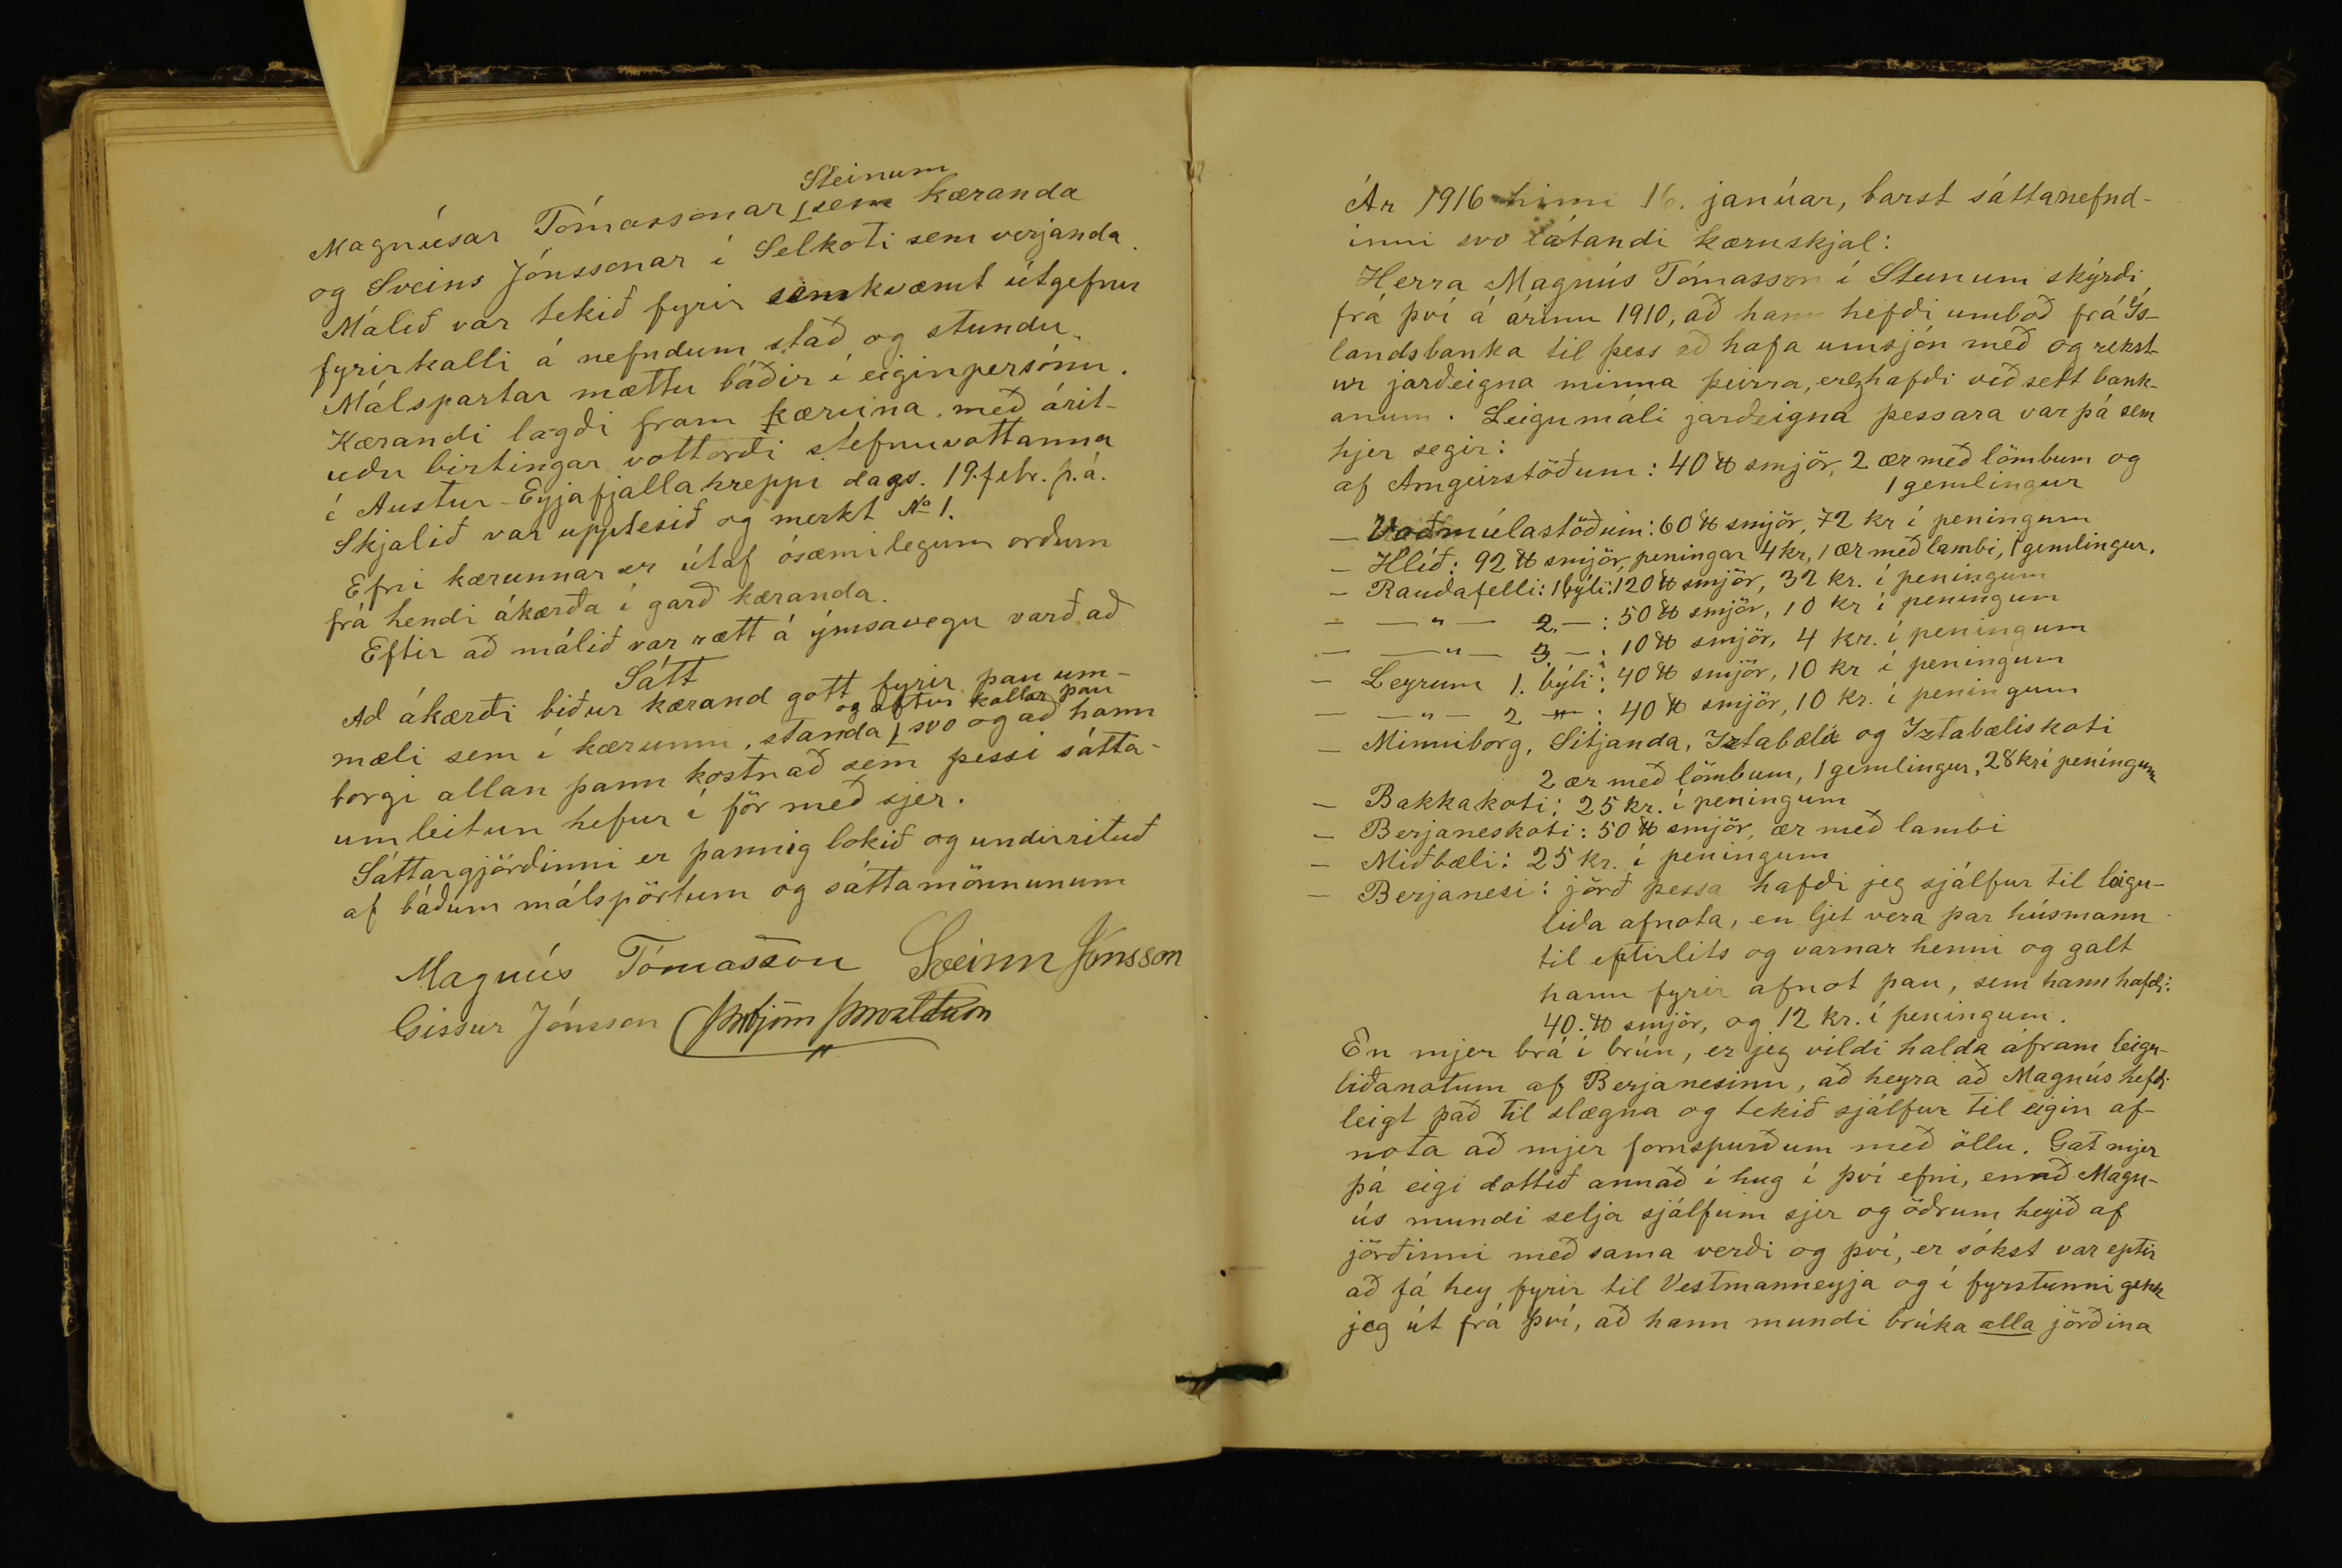 Magnúsar Tómassonar Steinum sem kæranda
og Sveins Jónssonar í Selkoti sem verjanda.
Málið var tekið fyrir samkvæmt útgefnu
fyrirkalli á nefndum stað og stundu.
Málspartar mættu báðir í eiginpersónu.
Kærandi lagði fram kæruna, með árit-
uðu birtingar vottorði stefnuvottanna
í Austur-Eyjafjallahreppi dags. 19. febr. þ.á.
Skjalið var upplesið og merkt No 1.
Efni kærunnar er útaf ósæmilegum orðum
frá hendi ákærða í garð kæranda.
Eftir að málið var rætt á ýmsavegu varð að
Sátt
Að ákærði biður kærand gott fyrir þau um-
mæli sem í kærunni, standa og aftur kallar þau svo og að hann
borgi allan þann kostnað sem þessi sátta-
umleitun hefur í för með sjer.
Sáttargjörðinni er þannig lokið og undirrituð
af báðum málspörtum og sáttamönnunum
Magnús Tómasson Sveinn Jónsson
Gissur Jónsson Þorbjörn Þorvaldsson
Ár 1916 hinn 16. janúar, barst sáttanefnd-
inni svo látandi kæruskjal:
Herra Magnús Tómasson í Steinum skýrði
frá því á árinu 1910, að hann hefði umboð frá Ís-
landsbanka til þess að hafa umsjón með og rekst-
ur jarðeigna minna þeirra, er eg hafði veðsett bank-
anum. Leigumáli jarðeigna þessara var þá sem
hjer segir:
af Arngeirstöðum: 40 ℔ smjör, 2 ær með lömbum og
1 gemlingur
— Voðmúlastöðum: 60 ℔ smjör, 72 kr í peningum
— Hlíð: 92 ℔ smjör, peningar 4 kr, 1 ær með lambi, 1 gemlingur.
— Rauðafelli: 1 býli: 120 ℔ smjör, 32 kr. í peningum
— —"— 2. —: 50 ℔ smjör, 10 kr í peningum
— —"— 3 —: 10 ℔ smjör, 4 kr. í peningum
— Leyrum 1. býli: 40 ℔ smjör, 10 kr í peningum
— —"— 2 —"—: 40 ℔ smjör, 10 kr. í peningum
— Minniborg, Sitjanda, Yztabæli og Yztabæliskoti
2 ær með lömbum, 1 gemlingur, 28 kr í peningum
— Bakkakoti: 25 kr. í peningum
— Berjaneskoti: 50 ℔ smjör, ær með lambi
— Miðbæli: 25 kr. í peningum
— Berjanesi: jörð þessa hafði jeg sjálfur til leigu-
liða afnota, en ljet vera þar húsmann
til eptirlits og varnar henni og galt
hann fyrir afnot þau, sem hann hafði:
40. ℔ smjör, og 12 kr. í peningum.
En mjer brá í brún, er jeg vildi halda áfram leigu-
liðanotum af Berjanesinu, að heyra að Magnús hefði
leigt það til slægna og tekið sjálfur til eigin af-
nota að mjer fornspurðum með öllu. Gat mjer
þá eigi dottið annað í hug í því efni, en að Magn-
ús mundi selja sjálfum sjer og öðrum heyið af
jörðinni með sama verði og því, er sókst var eptir
að fá hey fyrir til Vestmanneyja og í fyrstunni gekk
jeg út frá því, að hann mundi brúka alla jörðina